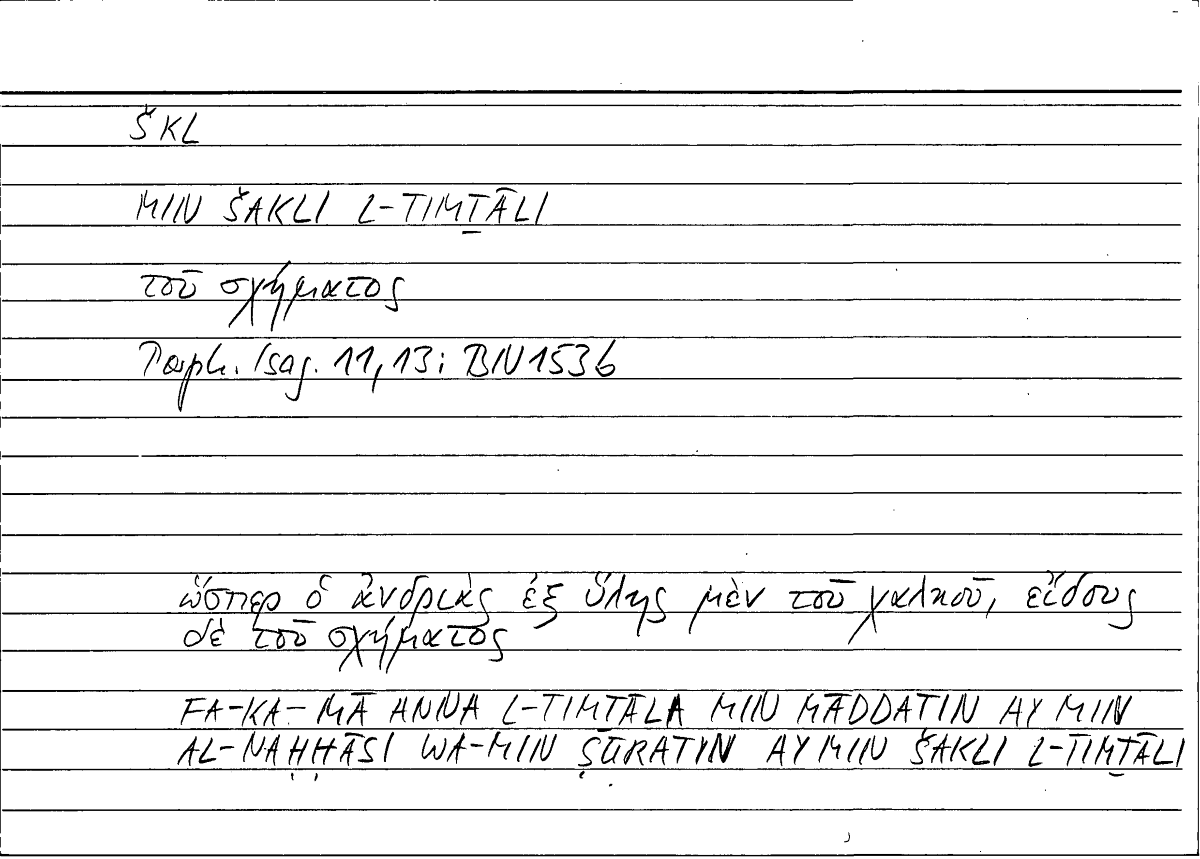 ŠKL
MIN ŠAKLI L-TIMṮĀLI
τοῦ σχήματος
Porph. Isag. 11,13: BN 1536
ὥσπερ ὁ ἀνδριὰς ἐξ ὕλης μὲν τοῦ χαλκοῦ, εἴδους
δὲ τοῦ σχήματος
FA-KA-MĀ ANNA L-TIMTĀLA MIN MĀDDATIN AY MIN
AL-NAḤḤĀSI WA-MIN ṢŪRATIN AY MIN ŠAKLI L-TIMṮĀLI